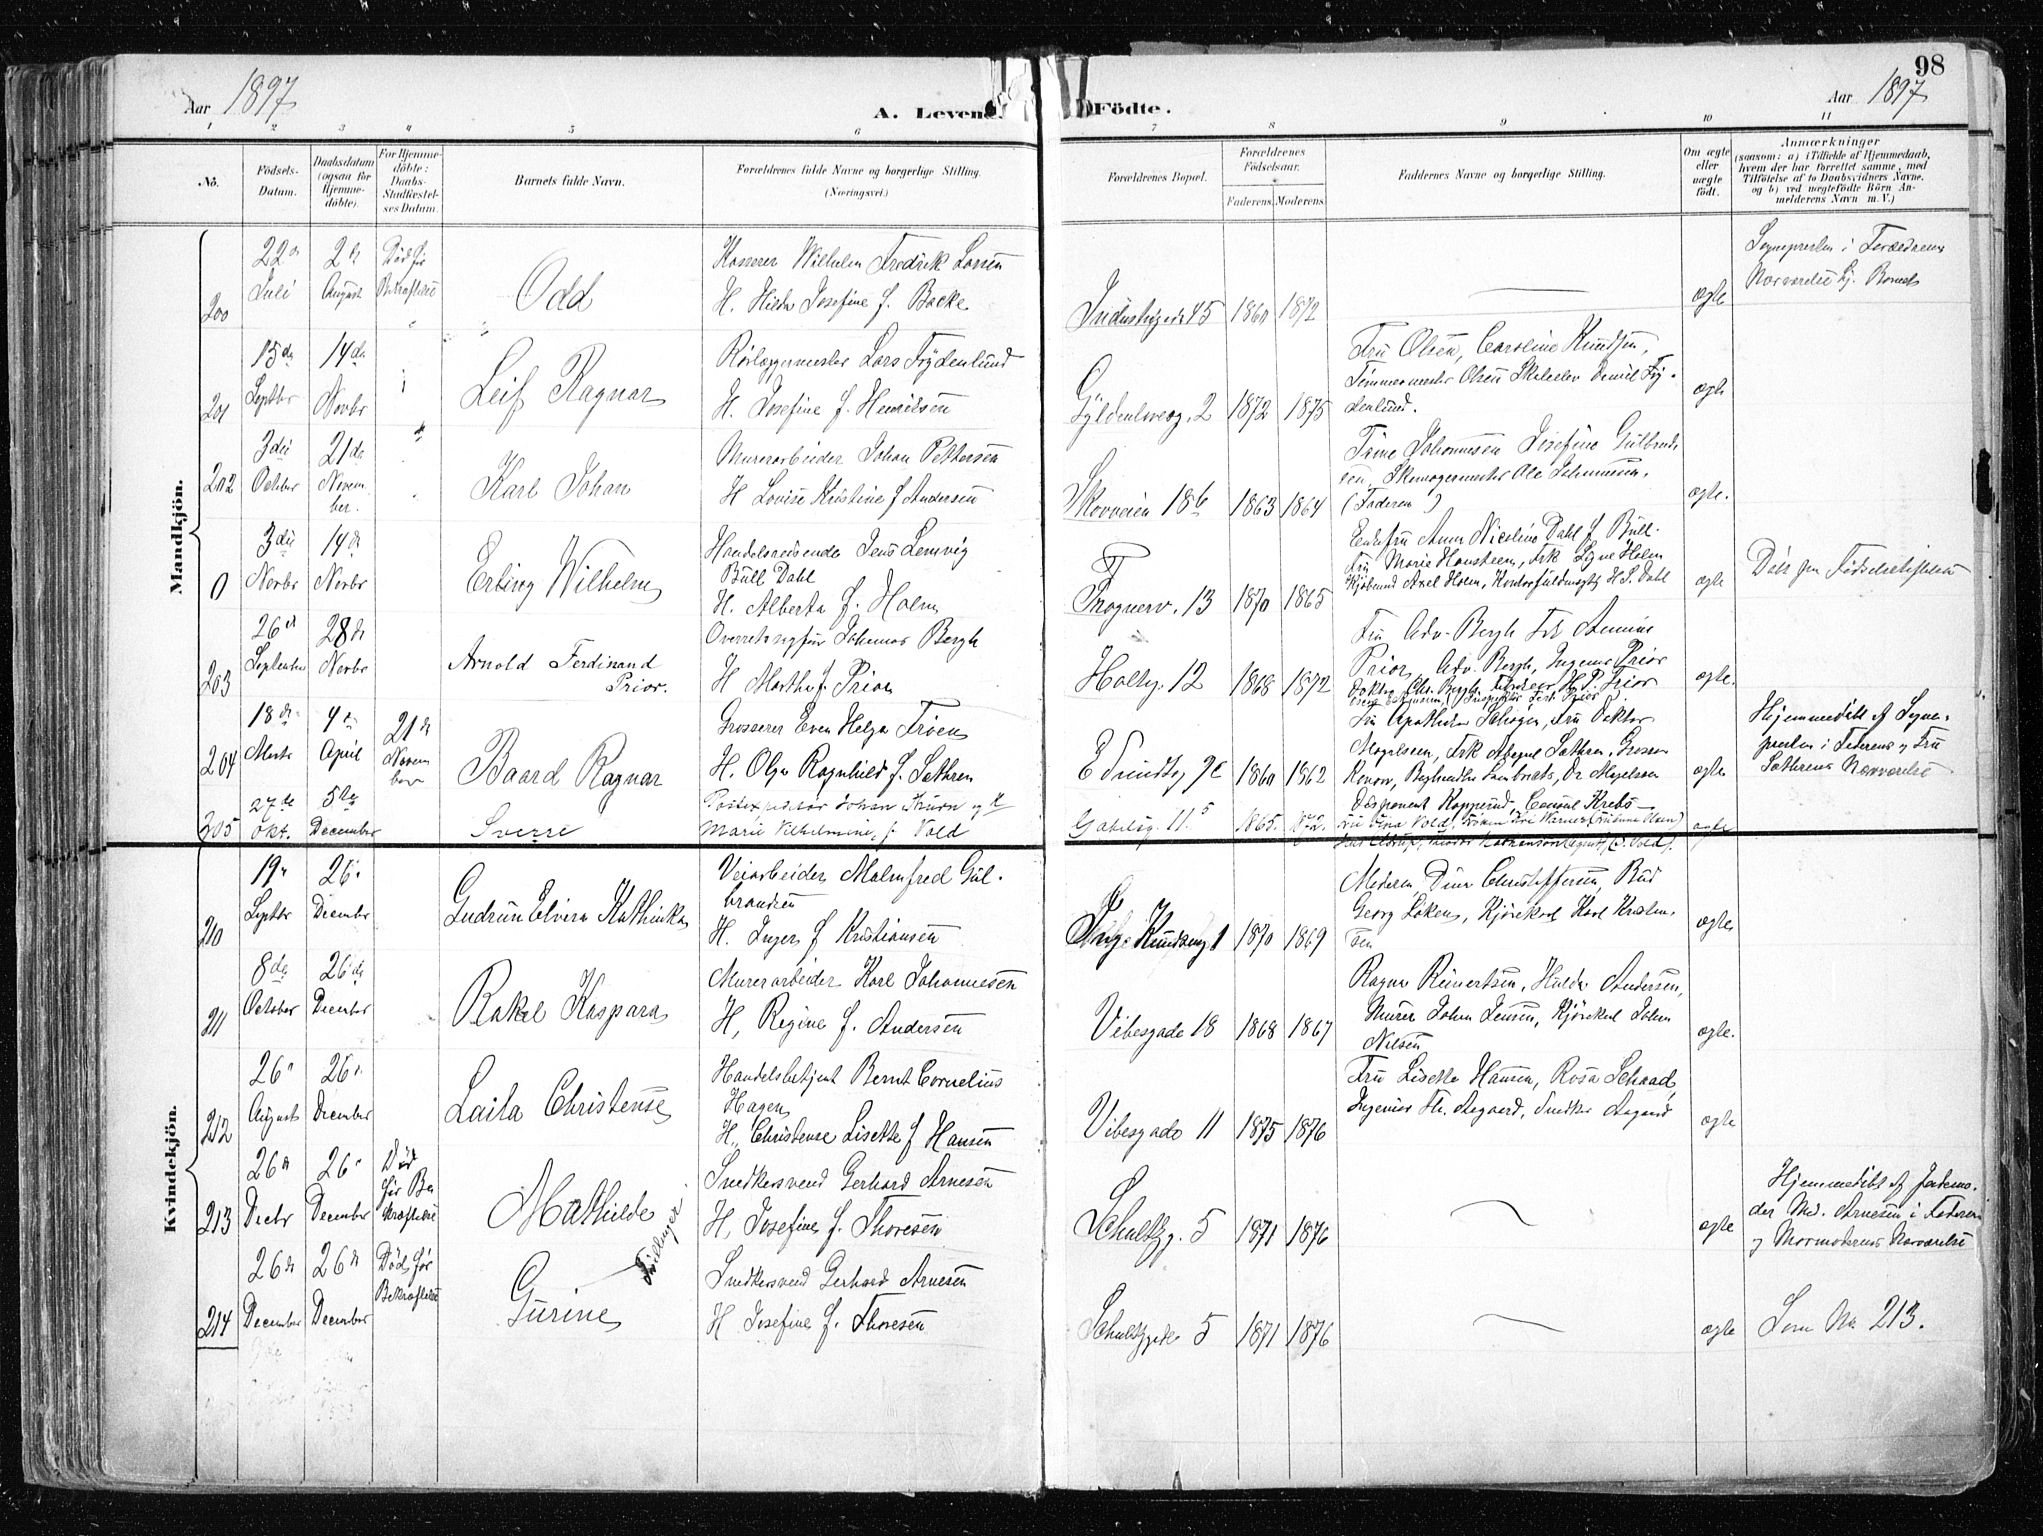 98
Aar 1897
A. Levende Födte.
Aar 1897
1 2 3 4 5 6 7 8 9 10 11
No.
Födsels-
Datum.
Daabsdatum
(ogsaa for
Hjemme-
döbte).
For Hjemme-
döbte:
Daabs-
Stadfæstel-
ses Datum.
Barnets fulde Navn.
Forældrenes fulde Navne og borgerlige Stilling.
(Næringsvei.)
Forældrenes Bopæl.
Forældrenes
Födselsaar.
Faderens. Moderens.
Faddernes Navne og borgerlige Stilling.
Om ægte
eller
uægte
födt.
Anmærkninger
(saasom: a) i Tilfælde af Hjemmedaab,
hvem der har forrettet samme, med
Tilföielse af to Daabsvidners Navne.
og b) ved uægtefödte Börn An-
melderens Navn m. V.)
Mandkjön.
200
22de
Juli
2de
August
Död för
Bekræftelse
Odd
Kasserer Wilhelm Fredrik
H. Hilda Josefine f. Backe
Industrigade 45
1872
ægte
Sognepresten i Forældrenes
Nærværelse
201
15de
Septbr
14de
Novbr
Leif Ragnar
Rörlæggermester Lars Frydenlund
H. Josefine f. Henriksen
Gyldenlövesg. 2
1872
1875
Fru Olsen, Caroline Knudsen,
Tömmermester Olsen Daniel Fry-
denlund.
ægte
202
3die
October
21de
Novem
ber.
Karl Johan
Murerarbeider Johan Pettersen
H Lovise Kristine f Andersen
Skovveien 18b
1863
1864
Trine Johannesen Josefine Gulbrand
sen, Skomagermester Ole Johannesen,
(Faderen)
ægte.
0
3die
Novbr
14de
Novbr
Erling Wilhelm
Handelsreisende Jens Lemvig
Bull Dahl
H. Alberta f. Holm
Frognerv. 13
1870
1865
Enkefru Anna Nicoline Dahl f Bull.
Fru Marie Hansteen, Frk Signe Holm
Axel Holm, Kontorfuldmægtig H. S. Dahl
ægte
203
26de
September
28de
Novbr
Arnold Ferdinand
Prior.
Overretssagförer Johannes Bergh
H Martha f. Prior
Holtg. 12
1868
1872
Fru Adv. Bergh Frk
Prior, Adv. Bergh, Ingeniör Prior
ægte.
204
18de
Marts
4de
April
21de
Novem
ber
Baard Ragnar
Grosserer Even Helge Fröen
H. Olga Ragnhild f. Sæthren
E Sundtsg
1862
Fru Apotheker Fru Doktor
Mogelsen, Frk Sæthren,
Dr Magelssen
Disponent Kopperud, Consul Krebs
ægte
Hjemmedöbt af Sogne-
presten i Faderens og Fru
Sæthrens Nærværelse
205
27de
Okt.
5te
December
Sverre
Johan
Marie Vilhelmine f. Vold
Gabelsg. 11.
1865.
ægte
Kvindekjön.
210
19de
Septbr
26
December
Gudrun Elvira Kathinka
Veiarbeider Malmfred Gul-
brandsen
H. Inger f Kristiansen
Inge Knudseng 1
1870
1869
Moderen, Dina Christoffersen, Bud
Georg Löken, Kjörekarl Karl Kristen-
sen
ægte
211
8de
October
26de
December
Rakel Kaspara
Murerarbeider Karl Johannesen
H, Regine f. Andersen
Vibesgade 18
1868
1867
Ragna Reinertsen, Hulda Andersen,
Murer Johan Jensen, Kjörekarl Johan
Nilsen
ægte.
212
26
August
26
December
Laila Christense
Handelsbetjent Bernt Cornelius
Hagen
H, Christense Lisette f Hansen
Vibesgade 11
1875
1876
Fru Lisette Hansen, Rosa Schaad
Ingeniör Th. Aagaard, Snedker Aagaard
ægte
213
26de
Decbr
26
December
Död
för Be
kræftelse
Mathilde
Tvillinger
Snedkersvend Gerhard Arnesen
H, Josefine f. Thoresen
Schultzg. 5
1871
1876
ægte
Hjemmedöbt af Jordemo-
der Md. Arnesen i Faderens
og Mormoderens Nærværelse
214
26de
December
26de
December
Död för
Bekræftelse
Gurine
Snedkersvend Gerhard Arnesen
H Josefine f. Thoresen
Schultzgade 5
1871
1876
ægte
Som No 213.